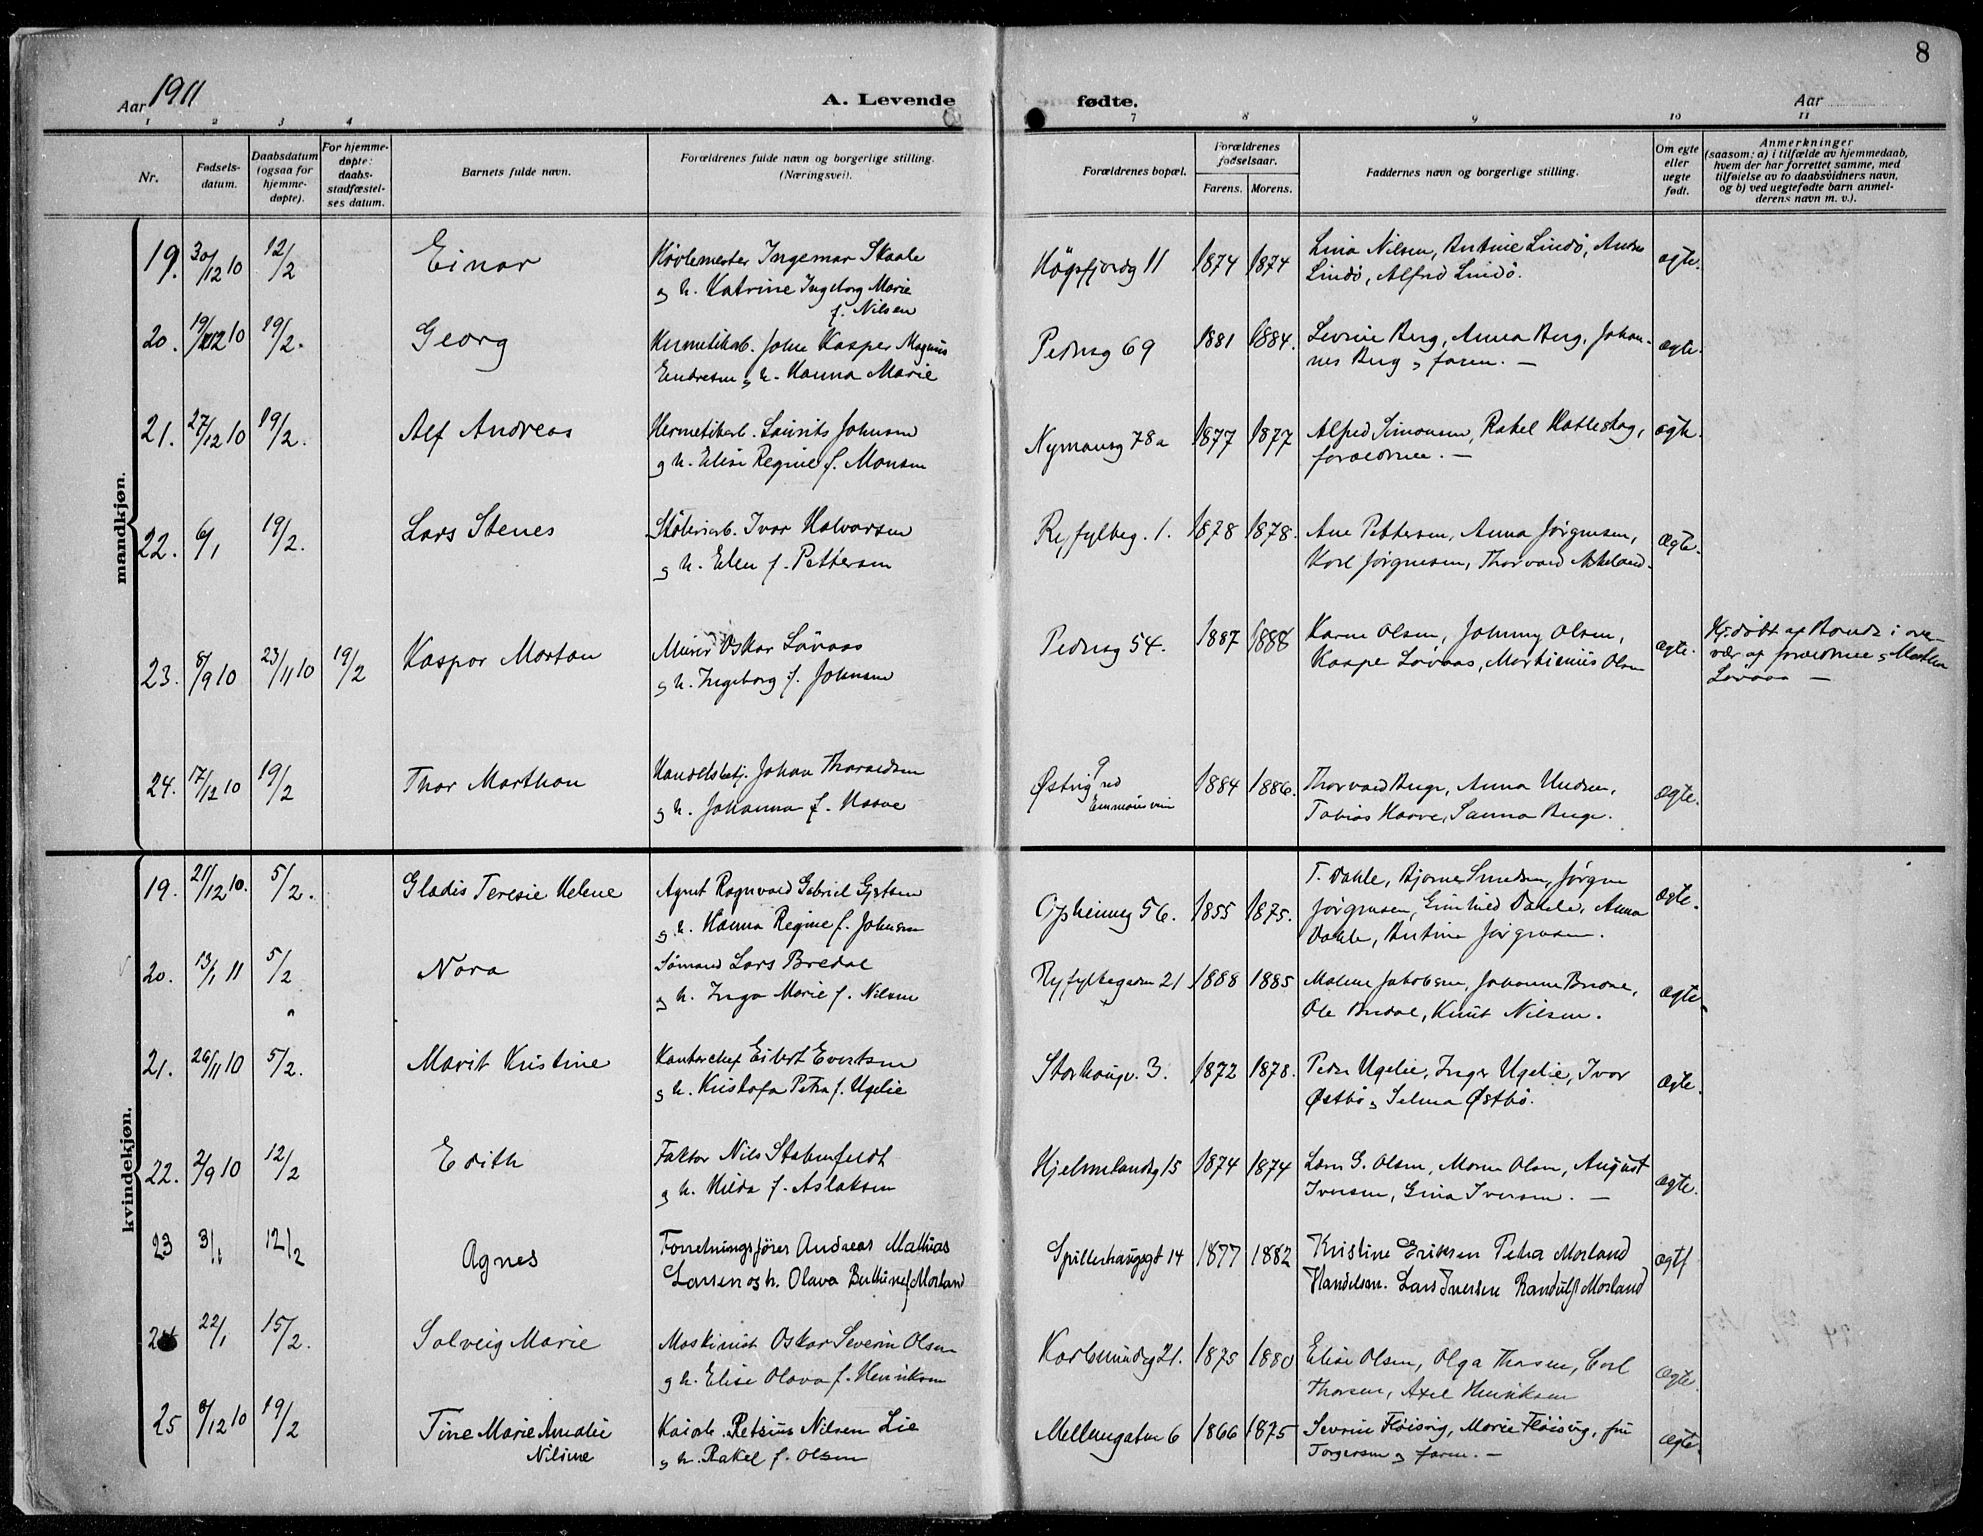 8
Aar 1911
A. Levende
fødte.
Aar
1 2 3 4
7 8 9 10 11
Nr.
Fødsels-
datum.
Daabsdatum
(ogsaa for
hjemme-
døpte).
For hjemme-
døpte:
daabs-
stadfæstel-
ses datum.
Barnets fulde navn.
Forældrenes fulde navn og borgerlige stilling.
(Næringsvei).
Forældrenes bopæl.
Forældrenes
fødselsaar.
Farens. Morens.
Faddernes navn og borgerlige stilling.
Om egte
eller
uegte
født.
Anmerkninger
(saasom: a) i tilfælde av hjemmedaab,
hvem der har forrettet samme, med
tilføielse av to daabsvidners navn,
og b) ved uegtefødte barn anmel-
derens navn m. v.).
mandkjøn.
19. 30/12 10 12/2 Einar
Høvlemester Ingemar Skaale
og h. Katrine Ingeborg Marie
f. Nilsen
Høgsfjordg 11 1874 1874
Lina Nilsen, Bertine Lindø, Andr
Lindø, Alfred Lindø.
ægte.
20. 19/12 10 19/2. Georg
Hermetikarb. Johan Kasper Magnus
Endresen og h. Hanna Marie
Pedersg 69 1881 1884.
Levine Berg, Anna Berg, Johan-
nes Berg og faren. —
ægte.
21. 27/12 10 19/2. Alf Andreas
Hermetikarb. Laurits Johnsen
og h. Elise Regine f. Monsen
Nymansg 78a 1877 1877
Alfred Simonsen, Rakel Hatleskog,
forældrene. —
ægte.
22. 6/1 19/2. Lars Stenes
Støberiarb. Ivar Halvorsen
og h. Elen f. Pettersen
Ryfylkeg. 1. 1878 1878.
Ane Pettersen, Anna Jørgensen,
Karl Jørgensen, Thorvald Askeland.
Ægte.
23. 8/9 10 23/11 10 19/2 Kaspar Morton
Murer Oskar Løvaas
og h. Ingeborg f. Johnsen
Pedersg 54. 1887 1888
Karen Olsen, Johnny Olsen,
Kaspe Løvaas, Martienius Olsen
ægte.
Hj.døbt af i over-
vær af forældrene og
Løvaas —
24. 17/12 10 19/2 Thor Marthon
Handelsbetj. Johan Thoraldsen
og h. Johanna f. Haave
Østvig 9 ved
1884 1886.
Thorvald Berge, Anna Knudsen,
Tobias Haave, Sanna Berge.
Ægte.
kvindekjøn.
19. 21/12 10. 5/2. Gladis Teresie Helene
Agent Ragnvald Gabriel Gjetsen
og h. Hanna Regine f. Johnsen
Opheimsg 56. 1855 1875.
T. Dahle, Bjarne Smedsen, Jørgen
Jørgensen, Dahle, Anna
Dahle, Bertine Jørgensen.
ægte.
20. 13/1 11 5/2 Nora
Sømand Lars Bredal
og h. Inga Marie f. Nilsen
Ryfylkegaden 21 1888 1885
Malene Jakobsen, Johanne
Ole Bredal, Knut Nilsen.
Ægte
21. 26/11 10 5/2. Marit Kristine
Kontorchef Eilert Evertsen
og h. Kristofa Petra f. Ugelie
Storhaugv. 3. 1872 1878.
Peder Ugelie, Inger Ugelie, Ivar
Østbø og Selma Østbø.
Ægte.
22. 2/9 10 12/2 Edith
Faktor Nils Stabenfeldt
og h. Hilda f. Aslaksen
Hjelmelandsg 15 1874 1874
Lars G. Olsen, Maren Olsen, August
Iversen, Gina Iversen. —
Ægte.
23 3/1 12/2 Agnes
Forretningsfører Andreas Mathias
Larsen og h. Olava Berthine f. Morland
Spillerhaugsgt 14 1877 1882
Kristine Eriksen Petra Morland
Handelsm. Lars Iversen Randulf Morland
ægte
24 22/1 15/2. Solveig Marie
Maskinist Oskar Severin Olsen
og h. Elise Olava f. Henriksen
Karlsmindeg 21. 1875 1880
Elise Olsen, Olga Thorsen, Carl
Thorsen, Axel Henriksen
Ægte.
25 8/12 10 19/2 Tine Marie Amalie
Nilsine
Kaiarb. Retsius Nilsen Lie
og h. Rakel f. Olsen
Mellemgaten 6 1866 1875
Severine Fløisvig, Marie Fløisvig, fru
Torgersen og faren. —
Ægte.